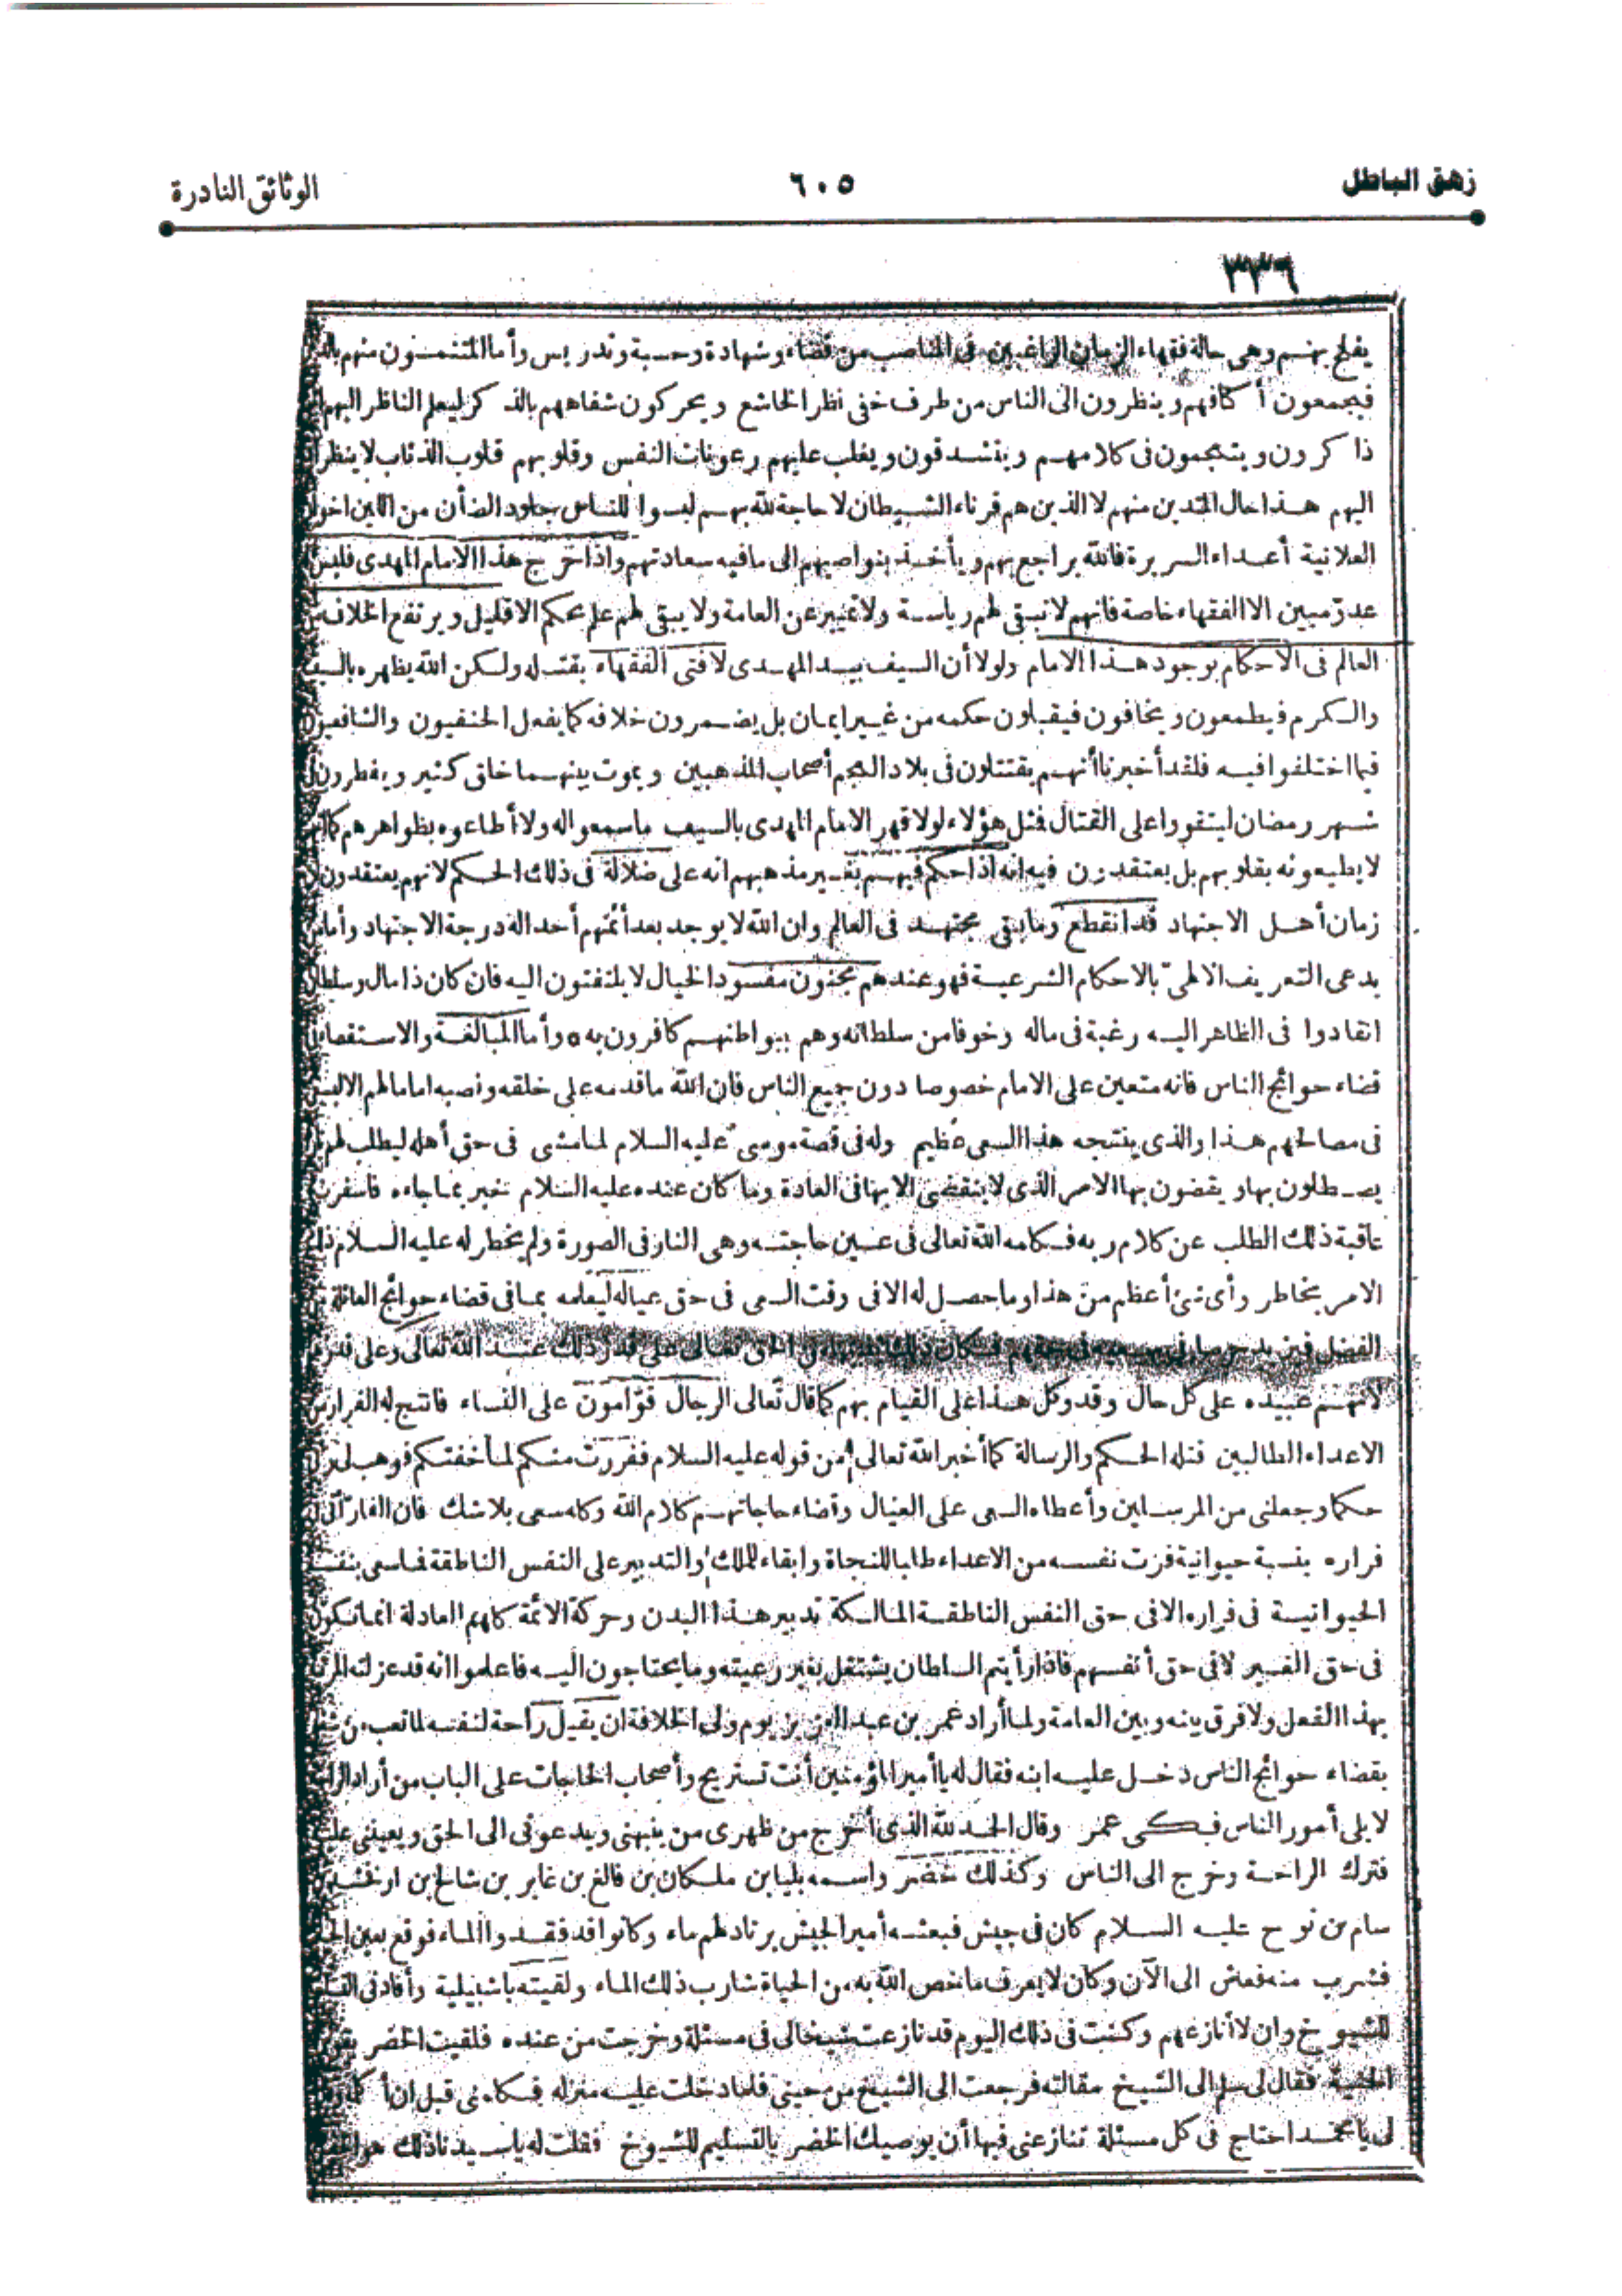 زهق الباطل
٦٠٥
الوثائق النادرة
٣٣٦
يفلح بهم وهى حالة فقهاء الزمان الراغبين فى المناصب من قضاء وشهادة وحسبة وتدريس وأما المتنمسون منهم
فيجمعون أكافهم وينظرون الى الناس من طرف خفى نظر الخاشع ويحركون شفاههم بالذكر ليعلم الناظر اليهم
ذاكرون ويتعجمون فى كلامهم ويتشدقون ويغلب عليهم رعونات النفس وقلوبهم قلوب الذئاب لا ينظر
اليهم هذا حال المتدين منهم لا الذين هم قرناء الشيطان لا حاجة لله بهم لبسوا للناس جلود الضأن من اللين اخوان
العلانية أعداء السريرة فالله يراجع بهم ويأخذ بنواصيهم الى ما فيه سعادتهم واذا خرج هذا الامام المهدى فليس
عدوّ مبين الا الفقهاء خاصة فانهم لا تبقى لهم رياسة ولا تمييز عن العامة ولا يبقى لهم علم بحكم الا قليل ويرتفع الخلاف
العالم فى الاحكام بوجود هذا الامام ولولا أن السيف بيد المهدى لافتى الفقهاء بقتله ولكن الله يظهره بالسيف
والكرم فيطمعون ويخافون فيقبلون حكمه من غير ايمان بل يضمرون خلافه كما يفعل الحنفيون والشافعيون
فيما اختلفوا فيه فلقد أخبرنا أنهم يقتتلون فى بلاد العجم أصحاب المذهبين ويموت بينهما خلق كثير ويفطرون فى
شهر رمضان ليتقووا على القتال فمثل هؤلاء لولا قهر الامام المهدى بالسيف ما سمعوا له ولا أطاعوه بظواهرهم كما
لا يطيعونه بقلوبهم بل يعتقدون فيه انه اذا حكم فيهم بغير مذهبهم انه على ضلالة فى ذلك الحكم لانهم يعتقدون
زمان أهل الاجتهاد قد انقطع وما بقى مجتهد فى العالم وان الله لا يوجد بعد أئمتهم أحدا له درجة الاجتهاد وأما من
يدعى التعريف الالهىّ بالاحكام الشرعية فهو عندهم مجنون مفسود الخيال لا يلتفتون اليه فان كان ذا مال وسلطان
انقادوا فى الظاهر اليه رغبة فى ماله وخوفا من سلطانه وهم ببواطنهم كافرون به ٥ وأما المبالغة والاستقصاء فى
قضاء حوائج الناس فانه متعين على الامام خصوصا دون جميع الناس فان الله ما قدمه على خلقه ونصبه اماما لهم الا
فى مصالحهم هذا والذى ينتجه هذا السعى عظيم وله فى قصة موسى عليه السلام لما مشى فى حق أهله ليطلب لهم
يصطلون بها ويقضون بها الامر الذى لا ينقضى الا بها فى العادة وما كان عنده عليه السلام خبر بما جاءه فاسفرت
عاقبة ذلك الطلب عن كلام ربه فكلمه الله تعالى فى عين حاجته وهى النار فى الصورة ولم يخطر له عليه السلام ذلك
الامر بخاطر وأى شئ أعظم من هذا وما حصل له الا فى وقت السعى فى حق عياله ليعلمه بما فى قضاء حوائج العائلة من
الفضل فيزيد حرصا فى سعيه فى حقهم فكان ذلك تنبيها من الحق تعالى على قدر ذلك عند الله تعالى وعلى قدرهم
لانهم عبيده على كل حال وقد وكل هذا على القيام بهم كما قال تعالى الرجال قوّامون على النساء فانتج له الفرار من
الاعداء الطالبين قتله الحكم والرسالة كما أخبر الله تعالى من قوله عليه السلام ففررت منكم لما خفتكم فوهب لى
حكما وجعلنى من المرسلين وأعطاه السعى على العيال وقضاء حاجاتهم كلام الله وكله سعى بلا شك فان الفارّ
فراره بنسبة حيوانية فرّت نفسه من الاعداء طلبا للنجاة وابقاء للملك والتدبير على النفس الناطقة فما سعى بنفسه
الحيوانية فى فراره الا فى حق النفس الناطقة المالكة تدبير هذا البدن وحركة الائمة كلهم العادلة انما تكون
فى حق الغير لا فى حق أنفسهم فاذا رأيتم السلطان يشتغل بغير رعيته وما يحتاجون اليه فاعلموا انه قد عزلته المرتبة
بهذا الفعل ولا فرق بينه وبين العامة ولما أراد عمر بن عبد العزيز يوم ولى الخلافة ان يقيل راحة لنفسه لما تعب من
بقضاء حوائج الناس دخل عليه ابنه فقال له يا أمير المؤمنين أنت تستريح وأصحاب الحاجات على الباب من أراد الراحة
لا يلى أمور الناس فبكى عمر وقال الحمد لله الذى أخرج من ظهرى من ينبهنى ويدعونى الى الحق ويعيننى عليه
فترك الراحة وخرج الى الناس وكذلك خضر واسمه بليا بن ملكان بن فالغ بن غابر بن شالخ بن ارفخشد
سام بن نوح عليه السلام كان فى جيش فبعثه أمير الجيش يرتاد لهم ماء وكانوا قد فقدوا الماء فوقع بعين الحياة
فشرب منه فعاش الى الآن وكان لا يعرف ما خص الله به من الحياة شارب ذلك الماء ولقيته باشبيلية وأفادنى التسليم
للشيوخ وان لا أنازعهم وكنت فى ذلك اليوم قد نازعت شيخا لى فى مسئلة وخرجت من عنده فلقيت الخضر
الحنية فقال لى سلم الى الشيخ مقالته فرجعت الى الشيخ من حينى فلما دخلت عليه منزله فكلمنى قبل ان أكلمه
لى يا محمد احتاج فى كل مسئلة تنازعنى فيها أن يوصيك الخضر بالتسليم للشيوخ فقلت له يا سيدنا ذلك هو